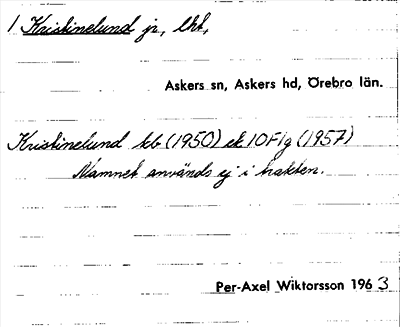 1 Kristinelund jr, lht,
Askers sn, Askers hd, Örebro län.
Kristinelund kb (1950) ek 10F1g (1957)
Namnet används ej i trakten.
Per-Axel Wiktorsson 1963